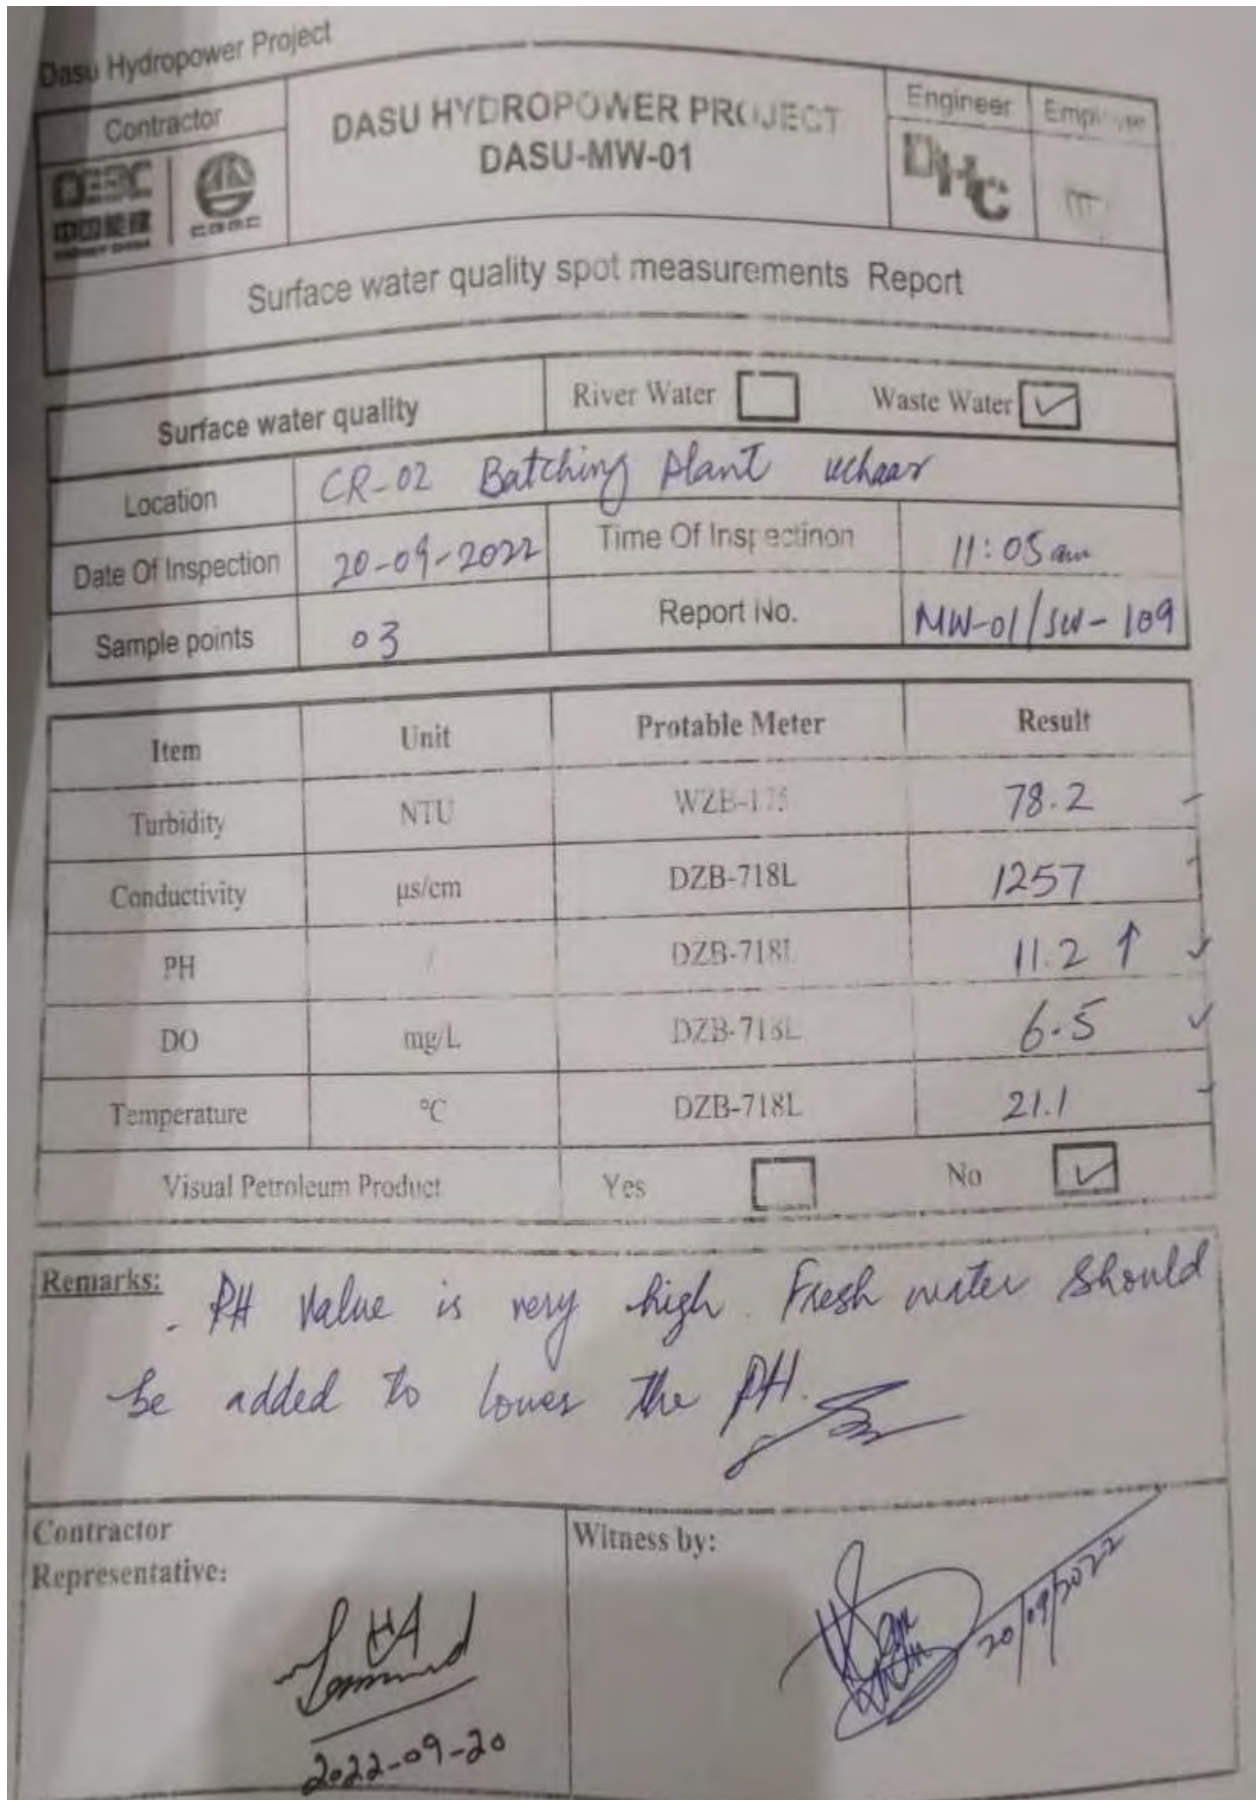 Dasu Hydropower Project
Contractor
DASU HYDROPOWER PROJECT
DASU-MW-01
Engineer
中国能建
ENERGY CHINA
CGGC
DHC
Surface water quality spot measurements Report
Surface water quality River Water Waste Water
Location CR-02 Batching plant uchaar
Date Of Inspection 20-09-2022 Time Of Inspectinon 11:05 am
Sample points 03 Report No. MW-01/SW-109
Item Unit Protable Meter Result
Turbidity NTU WZB-175 78.2
Conductivity µs/cm DZB-718L 1257
PH / DZB-718L 11.2 ↑
DO mg/L DZB-718L 6.5
Temperature °C DZB-718L 21.1
Visual Petroleum Product Yes No
Remarks:
- PH Value is very high. Fresh water should
be added to lower the PH.
Contractor
Representative:
Witness by:
20/09/2022
2022-09-20